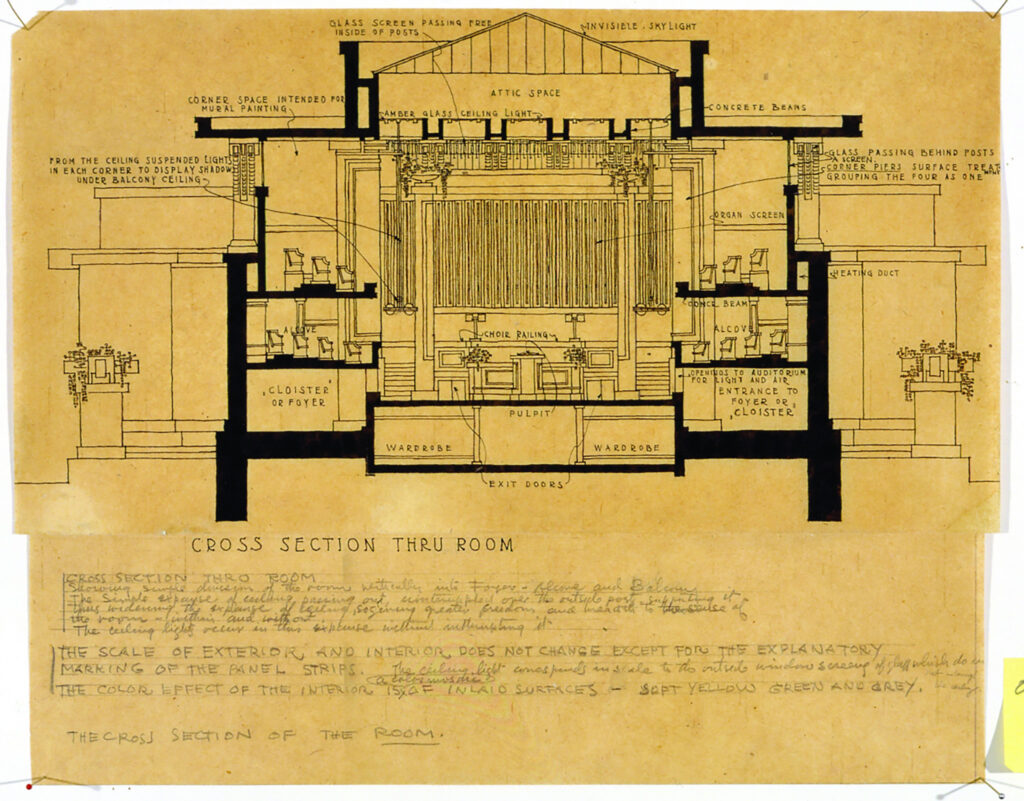 GLASS SCREEN PASSING FREE
INSIDE OF POSTS
INVISIBLE SKYLIGHT
ATTIC SPACE
CORNER SPACE INTENDED FOR
MURAL PAINTING
AMBER GLASS CEILING LIGHT
CONCRETE BEAMS
FROM THE CEILING SUSPENDED LIGHTS
IN EACH CORNER TO DISPLAY SHADOW
UNDER BALCONY CEILING
GLASS PASSING BEHIND POSTS
A SCREEN.
CORNER PIERS SURFACE TREAT
GROUPING THE FOUR AS ONE
ORGAN SCREEN
HEATING DUCT
CONCR BEAM
ALCOVE
CHOIR RAILING
ALCOVE
"CLOISTER"
OR FOYER
OPENINGS TO AUDITORIUM
FOR LIGHT AND AIR
ENTRANCE TO
FOYER OR
"CLOISTER"
PULPIT
WARDROBE
WARDROBE
EXIT DOORS
CROSS SECTION THRU ROOM
CROSS SECTION THRO ROOM
Showing simple division of the room vertically into Foyer - Alcove and Balcony
The simple expanse of ceiling passing out, over the outside post supporting it
thus widening the expanse of ceiling, so gaining greater freedom and breadth to the sense of
the room - within and without.
The ceiling lights occur in this expanse without interrupting it
THE SCALE OF EXTERIOR AND INTERIOR DOES NOT CHANGE EXCEPT FOR THE EXPLANATORY
MARKING OF THE PANEL STRIPS. The ceiling light corresponds in scale to the outside window screens of glass which do
THE COLOR EFFECT OF THE INTERIOR IS OF INLAID SURFACES - SOFT YELLOW GREEN AND GREY.
THE CROSS SECTION OF THE ROOM.